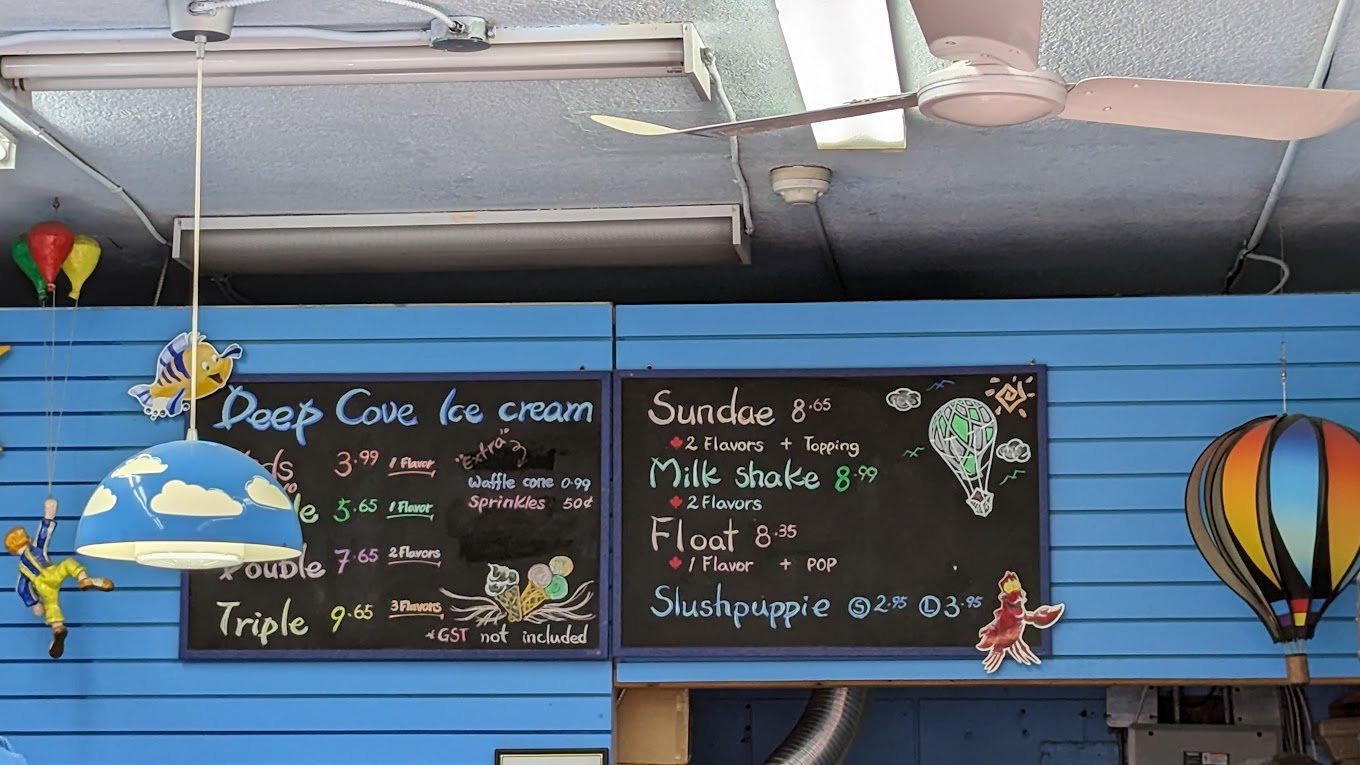 Deep Cove Ice cream
3.99 1 Flavor
5.65 1 Flavor
Double 7.65 2 Flavors
Triple 9.65 3 Flavors
"Extra"
Waffle cone 0.99
Sprinkles 50¢
*GST not included
Sundae 8.65
2 Flavors + Topping
Milk shake 8.99
2 Flavors
Float 8.35
1 Flavor + POP
Slushpuppie S 2.95 L 3.95